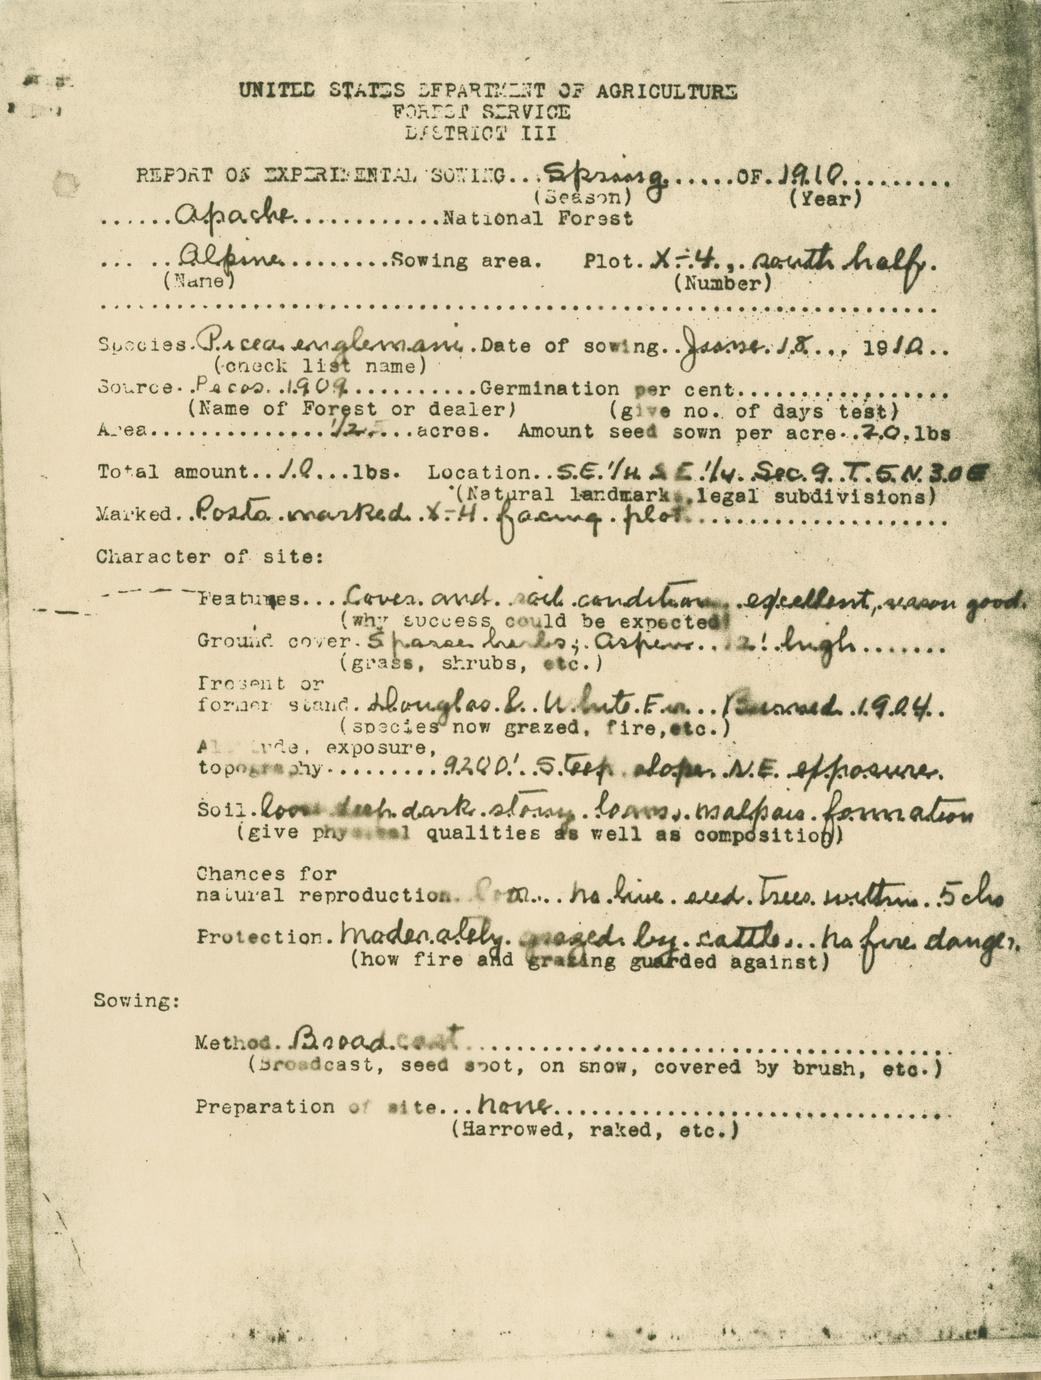 UNITED STATES DEPARTMENT OF AGRICULTURE
FOREST SERVICE
DISTRICT III
REPORT ON EXPERIMENTAL SOWING...Spring......OF.1910.........
(Season) (Year)
......Apache............National Forest
... ..Alpine........Sowing area. Plot.X-4.,.south half.
(Name) (Number)
Species.Picea englemani.Date of sowing..June.18... 1910..
(check list name)
Source..Pecos..1909...........Germination per cent.................
(Name of Forest or dealer) (give no. of days test)
Area..............1/2.....acres. Amount seed sown per acre..20.lbs
Total amount..10...lbs. Location..S.E.1/4 S E.1/4.Sec.9.T.5.N.30E
(Natural landmarks,legal subdivisions)
Marked..Posts.marked.X-4.facing.plot....................
Character of site:
Features....Cover.and.soil.condition...excellent, season good.
(why success could be expected)
Ground cover.Sparse herbs;.Aspen...2'.high.......
(grass, shrubs, etc.)
Present or
former stand.Douglas.&.White.Fir...Burned.1904..
(species now grazed, fire,etc.)
Altitude, exposure,
topography.........9200'..Steep.slope..N.E. exposure.
Soil.loose deep.dark.stony.loam..malpais.formation
(give physical qualities as well as composition)
Chances for
natural reproduction. ... no.live.seed.trees.within..5 chs
Protection.Moderately.grazed.by.cattle...no fire danger.
(how fire and grazing guarded against)
Sowing:
Method..Broadcast..........................
(Broadcast, seed spot, on snow, covered by brush, etc.)
Preparation of site...none...........................
(Harrowed, raked, etc.)